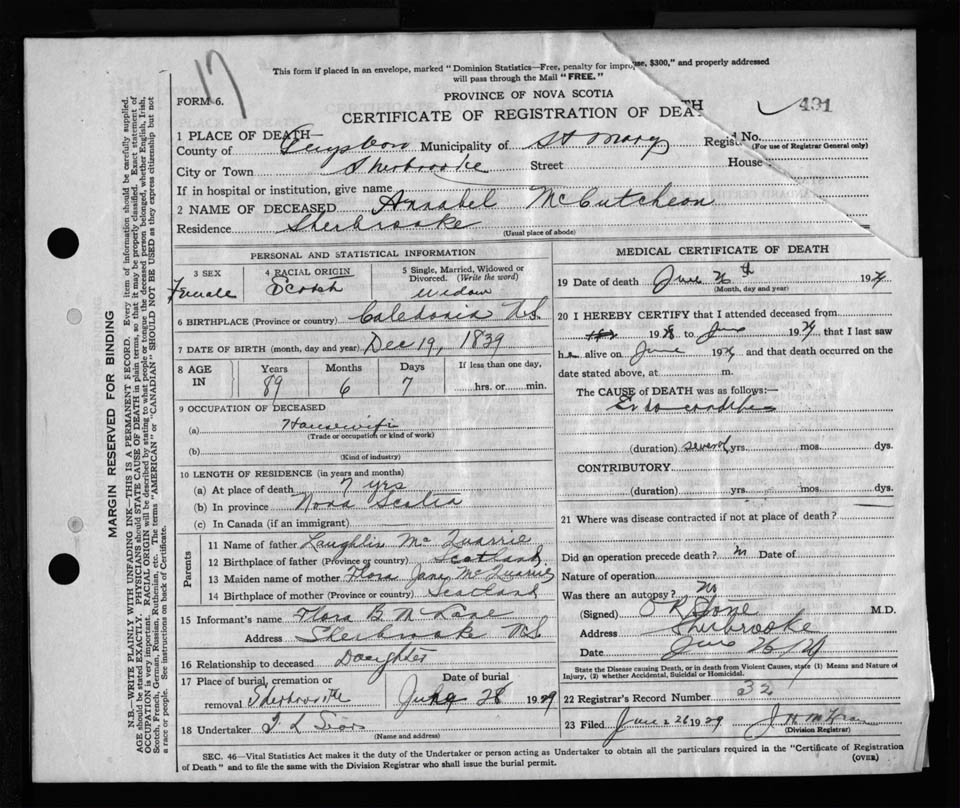 17
This form if placed in an envelope, marked "Dominion Statistics—Free, penalty for improper use, $300," and properly addressed
will pass through the Mail "FREE."
FORM 6.
PROVINCE OF NOVA SCOTIA
CERTIFICATE OF REGISTRATION OF DEATH
431
1 PLACE OF DEATH—
County of Guysboro Municipality of St Mary Registered No.
(For use of Registrar General only)
City or Town Sherbrooke Street House
If in hospital or institution, give name
2 NAME OF DECEASED Annabel McCutcheon
Residence Sherbrooke
(Usual place of abode)
PERSONAL AND STATISTICAL INFORMATION
3 SEX
Female
4 RACIAL ORIGIN
Scotch
5 Single, Married, Widowed or Divorced. (Write the word)
Widow
6 BIRTHPLACE (Province or country) Caledonia N.S.
7 DATE OF BIRTH (month, day and year) Dec 19, 1839
8 AGE IN
Years Months Days If less than one day,
89 6 7 hrs. or min.
9 OCCUPATION OF DECEASED
(a) Housewife
(Trade or occupation or kind of work)
(b)
(Kind of industry)
10 LENGTH OF RESIDENCE (in years and months)
(a) At place of death 7 yrs
(b) In province Nova Scotia
(c) In Canada (if an immigrant)
Parents
11 Name of father Laughlin McQuarrie
12 Birthplace of father (Province or country) Scotland
13 Maiden name of mother Flora Jane McQuarrie
14 Birthplace of mother (Province or country) Scotland
15 Informant's name Flora B. McLane
Address Sherbrooke N.S.
16 Relationship to deceased Daughter
17 Place of burial, cremation or removal Sherbrooke
Date of burial
June 28 1929
18 Undertaker
(Name and address)
MEDICAL CERTIFICATE OF DEATH
19 Date of death June 26th 1929
(Month, day and year)
20 I HEREBY CERTIFY that I attended deceased from
1928 to June 1929, that I last saw
her alive on June 1929, and that death occurred on the
date stated above, at m.
The CAUSE of DEATH was as follows:—
(duration) several yrs. mos. dys.
CONTRIBUTORY
(duration) yrs. mos. dys.
21 Where was disease contracted if not at place of death?
Did an operation precede death? Date of
Nature of operation
Was there an autopsy? No
(Signed) M.D.
Address Sherbrooke
Date June 26/29
State the Disease causing Death, or in death from Violent Causes, state (1) Means and Nature of
Injury, (2) whether Accidental, Suicidal or Homicidal.
22 Registrar's Record Number 32
23 Filed June 26 1929
(Division Registrar)
SEC. 46—Vital Statistics Act makes it the duty of the Undertaker or person acting as Undertaker to obtain all the particulars required in the "Certificate of Registration
of Death" and to file the same with the Division Registrar who shall issue the burial permit.
(OVER)
MARGIN RESERVED FOR BINDING
N.B.—WRITE PLAINLY WITH UNFADING INK—THIS IS A PERMANENT RECORD. Every item of information should be carefully supplied.
AGE should be stated EXACTLY. PHYSICIANS should STATE CAUSE OF DEATH in plain terms, so that it may be properly classified. Exact statement of
OCCUPATION is very important. RACIAL ORIGIN will be described by stating to what people or tongue the deceased person belonged, whether English, Irish,
Scotch, French, German, Russian, Ruthenian, etc. The terms "AMERICAN" or "CANADIAN" SHOULD NOT BE USED as they express citizenship but not
a race or people. See instructions on back of Certificate.